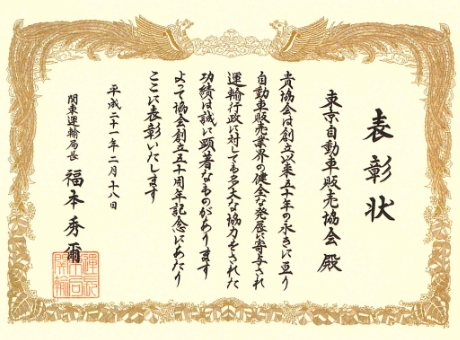 表彰状
東京自動車販売協会殿
貴協会は創立以来五十年の永きに亘り
自動車販売業界の健全な発展に寄与され
運輸行政に対しても多大な協力をされた
功績は誠に顕著なものがあります
よって協会創立五十周年記念にあたり
ここに表彰いたします
平成二十一年二月十八日
関東運輸局長
福本秀爾